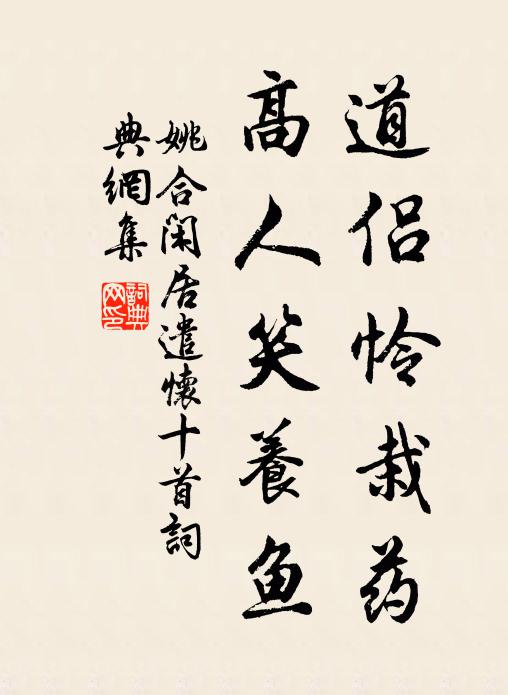 道侣怜栽药
高人笑養鱼
姚合闲居遣懷十首詞
典網集
詞典网印